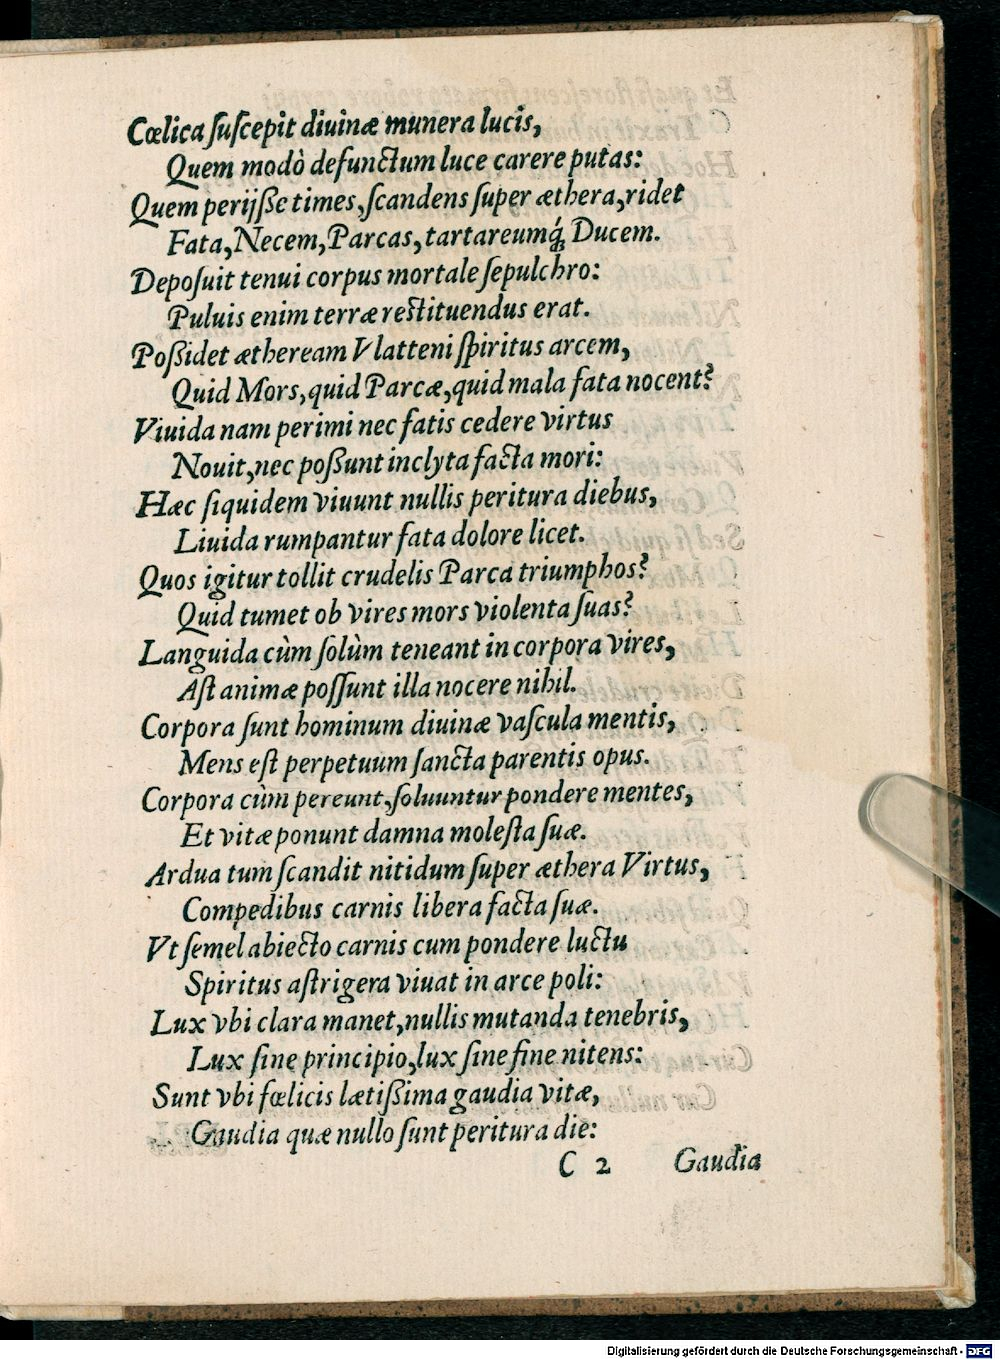 Cœlica ſuſcepit diuinæ munera lucis,
Quem modò defunctum luce carere putas:
Quem perijſſe times, ſcandens ſuper æthera, ridet
Fata, Necem, Parcas, tartareumq́; Ducem.
Depoſuit tenui corpus mortale ſepulchro:
Puluis enim terræ reſtituendus erat.
Poßidet ætheream Vlatteni ſpiritus arcem,
Quid Mors, quid Parcæ, quid mala fata nocent?
Viuida nam perimi nec fatis cedere virtus
Nouit, nec poßunt inclyta facta mori:
Hæc ſiquidem viuunt nullis peritura diebus,
Liuida rumpantur fata dolore licet.
Quos igitur tollit crudelis Parca triumphos?
Quid tumet ob vires mors violenta ſuas?
Languida cùm ſolùm teneant in corpora vires,
Aſt animæ poſſunt illa nocere nihil.
Corpora ſunt hominum diuinæ vaſcula mentis,
Mens eſt perpetuum ſancta parentis opus.
Corpora cùm pereunt, ſoluuntur pondere mentes,
Et vitæ ponunt damna moleſta ſuæ.
Ardua tum ſcandit nitidum ſuper æthera Virtus,
Compedibus carnis libera facta ſuæ.
Vt ſemel abiecto carnis cum pondere luctu
Spiritus aſtrigera viuat in arce poli:
Lux vbi clara manet, nullis mutanda tenebris,
Lux ſine principio, lux ſine fine nitens:
Sunt vbi fœlicis lætißima gaudia vitæ,
Gaudia quæ nullo ſunt peritura die:
C 2 Gaudia
Digitalisierung gefördert durch die Deutsche Forschungsgemeinschaft - DFG